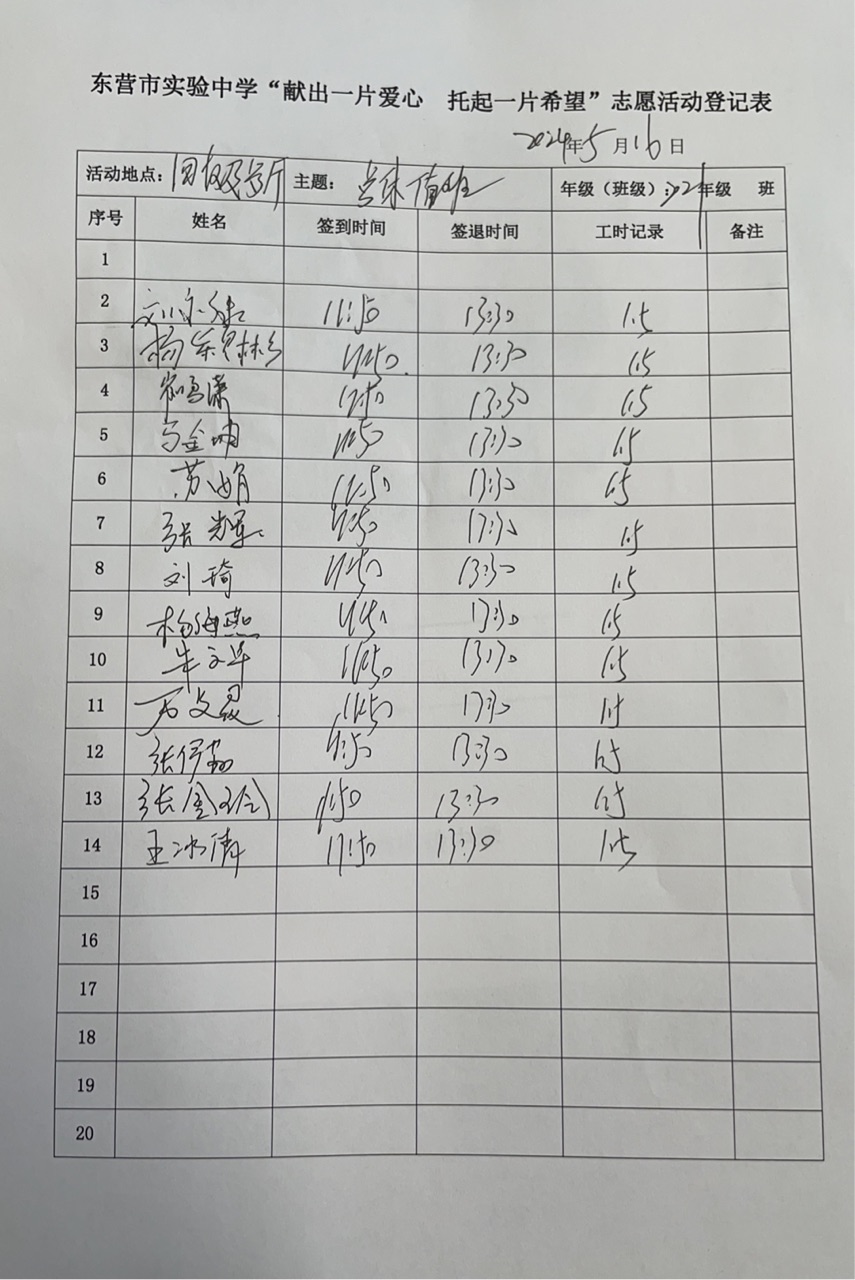 东营市实验中学“献出一片爱心 托起一片希望”志愿活动登记表
2024年5月16日
活动地点: 主题: 值班 年级(班级): 年级 班
序号 姓名 签到时间 签退时间 工时记录 备注
1
2 11:50 13:30 1.5
3 11:50 13:30 1.5
4 11:50 13:30 1.5
5 11:50 13:30 1.5
6 苏娟 11:50 13:30 1.5
7 张辉 11:50 13:30 1.5
8 刘琦 11:50 13:30 1.5
9 杨海燕 11:50 13:30 1.5
10 朱文华 11:50 13:30 1.5
11 11:50 13:30 1.5
12 张伊 11:50 13:30 1.5
13 张金玲 11:50 13:30 1.5
14 王冰倩 11:50 13:30 1.5
15
16
17
18
19
20